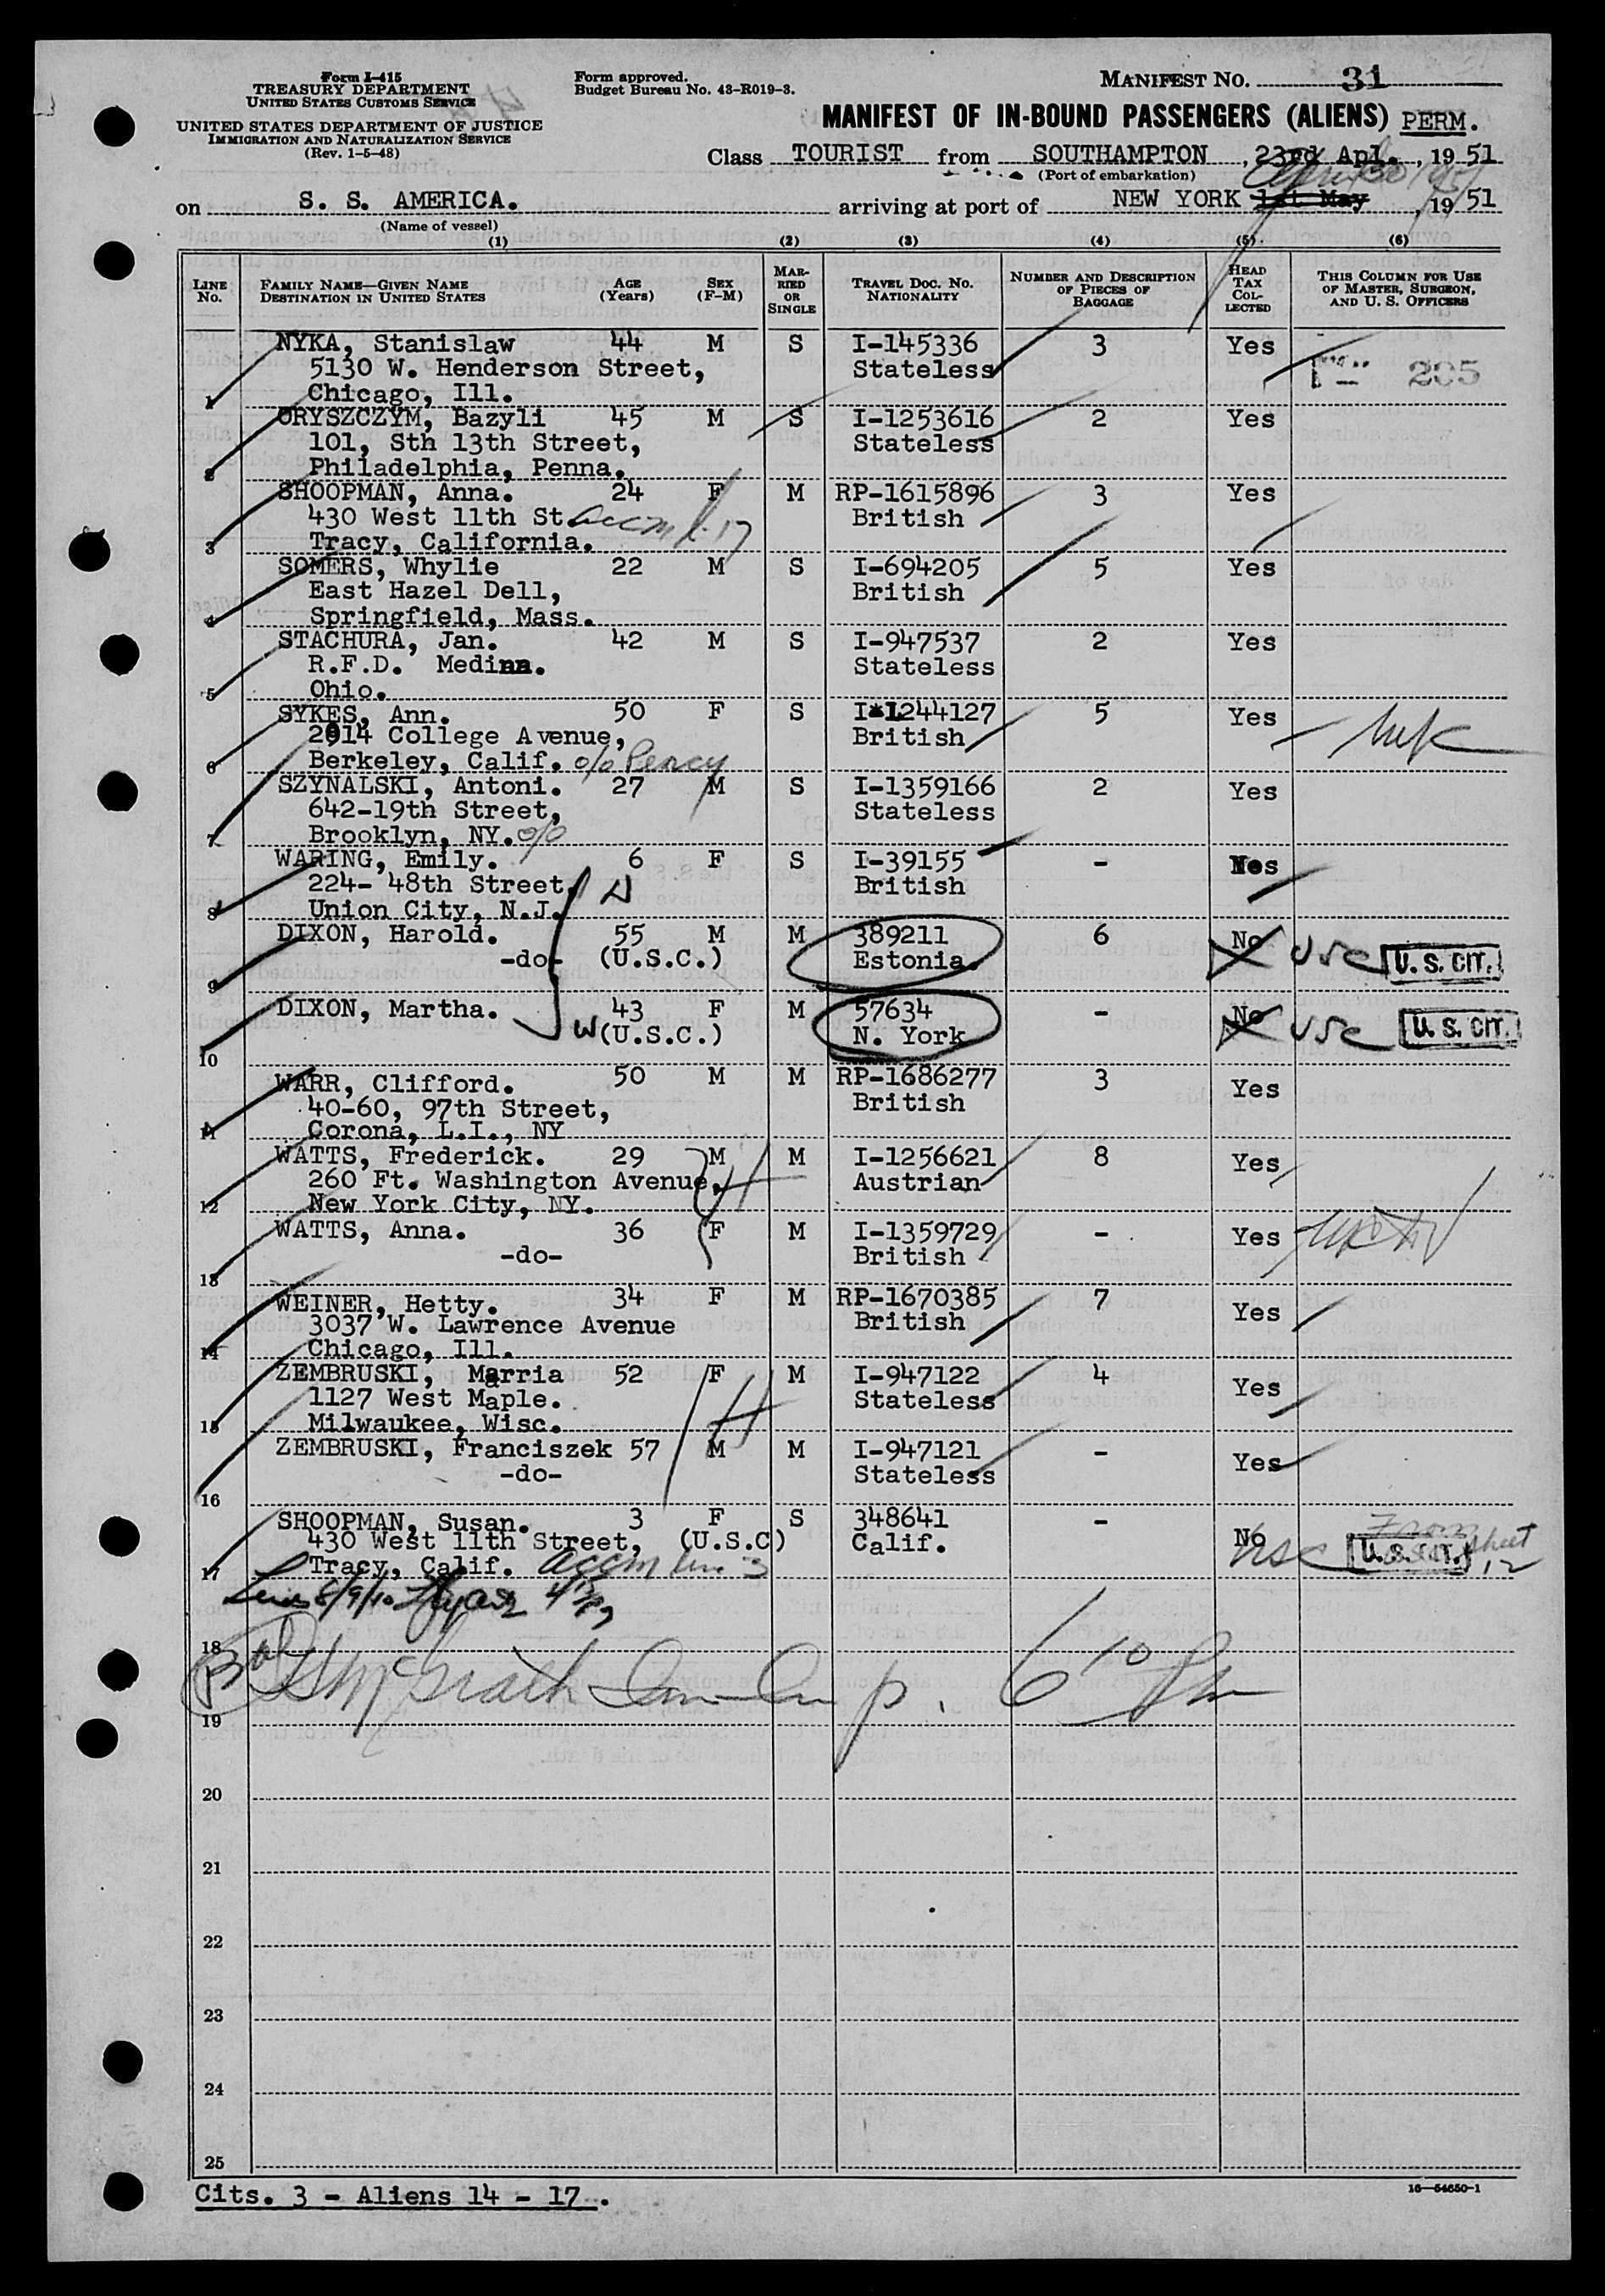 Form I-415
TREASURY DEPARTMENT
UNITED STATES CUSTOMS SERVICE
UNITED STATES DEPARTMENT OF JUSTICE
IMMIGRATION AND NATURALIZATION SERVICE
(Rev. 1-5-48)
Form approved.
Budget Bureau No. 43-R019-3.
MANIFEST NO. 31
MANIFEST OF IN-BOUND PASSENGERS (ALIENS) PERM.
Class TOURIST from SOUTHAMPTON, 23rd Apl., 1951
(Port of embarkation)
on S. S. AMERICA. arriving at port of NEW YORK 1st May, 1951
(Name of vessel)
(1) (2) (3) (4) (5) (6)
LINE No. FAMILY NAME—GIVEN NAME DESTINATION IN UNITED STATES AGE (Years) SEX (F-M) MARRIED OR SINGLE TRAVEL DOC. NO. NATIONALITY NUMBER AND DESCRIPTION OF PIECES OF BAGGAGE HEAD TAX COLLECTED THIS COLUMN FOR USE OF MASTER, SURGEON, AND U. S. OFFICERS
NYKA, Stanislaw 44 M S I-145336 3 Yes
5130 W. Henderson Street, Stateless
1 Chicago, Ill.
ORYSZCZYM, Bazyli 45 M S I-1253616 2 Yes
101, Sth 13th Street, Stateless
2 Philadelphia, Penna.
SHOOPMAN, Anna. 24 F M RP-1615896 3 Yes
430 West 11th St. accm l. 17 British
3 Tracy, California.
SOMERS, Whylie 22 M S I-694205 5 Yes
East Hazel Dell, British
4 Springfield, Mass.
STACHURA, Jan. 42 M S I-947537 2 Yes
R.F.D. Medina. Stateless
5 Ohio.
SYKES, Ann. 50 F S I-1244127 5 Yes
2914 College Avenue, British
6 Berkeley, Calif. o/o Percy
SZYNALSKI, Antoni. 27 M S I-1359166 2 Yes
642-19th Street, Stateless
7 Brooklyn, NY. o/o
WARING, Emily. 6 F S I-39155 - Yes
224- 48th Street, British
8 Union City, N.J.
DIXON, Harold. 55 M M 389211 6 No USC U. S. CIT.
9 -do- (U.S.C.) Estonia.
DIXON, Martha. 43 F M 57634 - No USC U. S. CIT.
W (U.S.C.) N. York
10
WARR, Clifford. 50 M M RP-1686277 3 Yes
40-60, 97th Street, British
11 Corona, L.I., NY
WATTS, Frederick. 29 M M I-1256621 8 Yes
260 Ft. Washington Avenue, H Austrian
12 New York City, NY.
WATTS, Anna. 36 F M I-1359729 - Yes
-do- British
13
WEINER, Hetty. 34 F M RP-1670385 7 Yes
3037 W. Lawrence Avenue British
14 Chicago, Ill.
ZEMBRUSKI, Marria 52 F M I-947122 4 Yes
1127 West Maple. H Stateless
15 Milwaukee, Wisc.
ZEMBRUSKI, Franciszek 57 M M I-947121 - Yes
-do- Stateless
16
SHOOPMAN, Susan. 3 F S 348641 - No USC U. S. CIT. From sheet 12
430 West 11th Street, (U.S.C) Calif.
17 Tracy, Calif. accm line 3
Lines 8/9/10
18
McGrath 6 10 Pm
19
20
21
22
23
24
25
Cits. 3 - Aliens 14 - 17.
16—54650-1